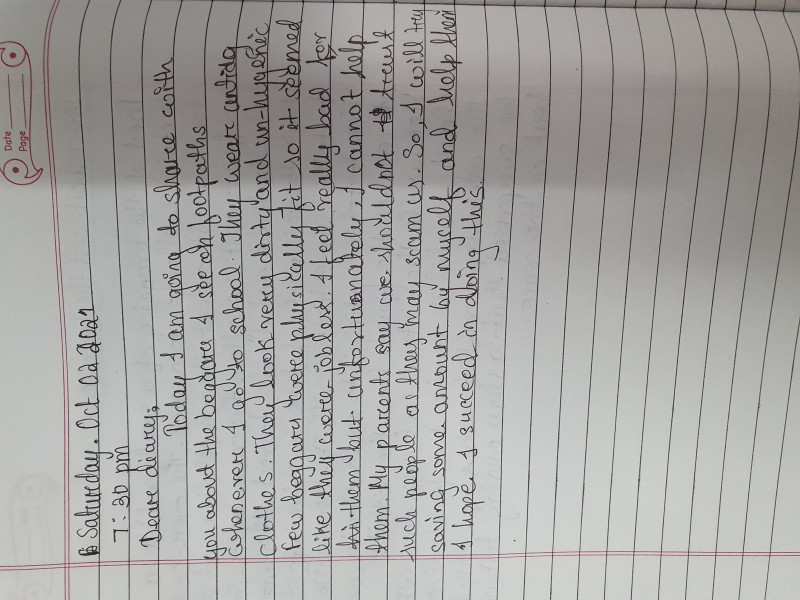 Date
Page
Saturday. Oct 02 2021
7:30 pm
Dear diary,
Today I am going to share with
you about the beggars I see on footpaths
whenever I go to school. They wear untidy
clothes. They look very dirty and un-hygenic
Few beggars were physically fit so it seemed
like they were jobless. I feel really bad for
them but unfortunately, I cannot help
them. My parents say we shouldnot trust
such people as they may scam us. So, I will try
saving some amount by myself and help them
I hope I succeed in doing this.